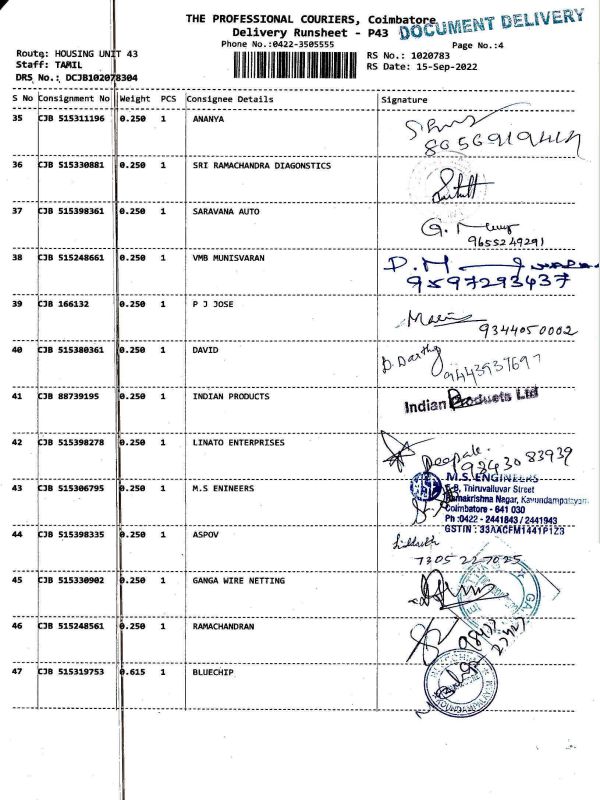 THE PROFESSIONAL COURIERS, Coimbatore
DOCUMENT DELIVERY
Delivery Runsheet - P43
Phone No.:0422-3505555
Page No.:4
Route: HOUSING UNIT 43
RS No.: 1020783
Staff: TAMIL
RS Date: 15-Sep-2022
DRS No.: DCJB102078304
S No Consignment No Weight PCS Consignee Details Signature
35 CJB 515311196 0.250 1 ANANYA
36 CJB 515330881 0.250 1 SRI RAMACHANDRA DIAGONSTICS
37 CJB 515398361 0.250 1 SARAVANA AUTO
9655249291
38 CJB 515248661 0.250 1 VMB MUNISVARAN
9597293437
39 CJB 166132 0.250 1 P J JOSE
9344050002
40 CJB 515380361 0.250 1 DAVID
41 CJB 88739195 0.250 1 INDIAN PRODUCTS
Indian Products Ltd
42 CJB 515398278 0.250 1 LINATO ENTERPRISES
Deepak.
9843083939
43 CJB 515306795 0.250 1 M.S ENINEERS
M.S. ENGINEERS
Thiruvalluvar Street
Ramakrishna Nagar, Kavundampalayam
Coimbatore - 641 030
Ph :0422 - 2441843 / 2441943
GSTIN : 33AACFM1441P1Z3
44 CJB 515398335 0.250 1 ASPOV
Siddarth
7305227025
45 CJB 515330902 0.250 1 GANGA WIRE NETTING
46 CJB 515248561 0.250 1 RAMACHANDRAN
47 CJB 515319753 0.615 1 BLUECHIP